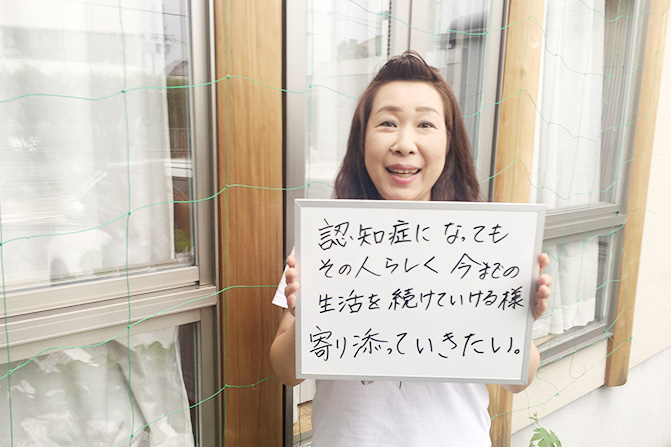 認知症になっても
その人らしく 今までの
生活を続けていける様
寄り添っていきたい。